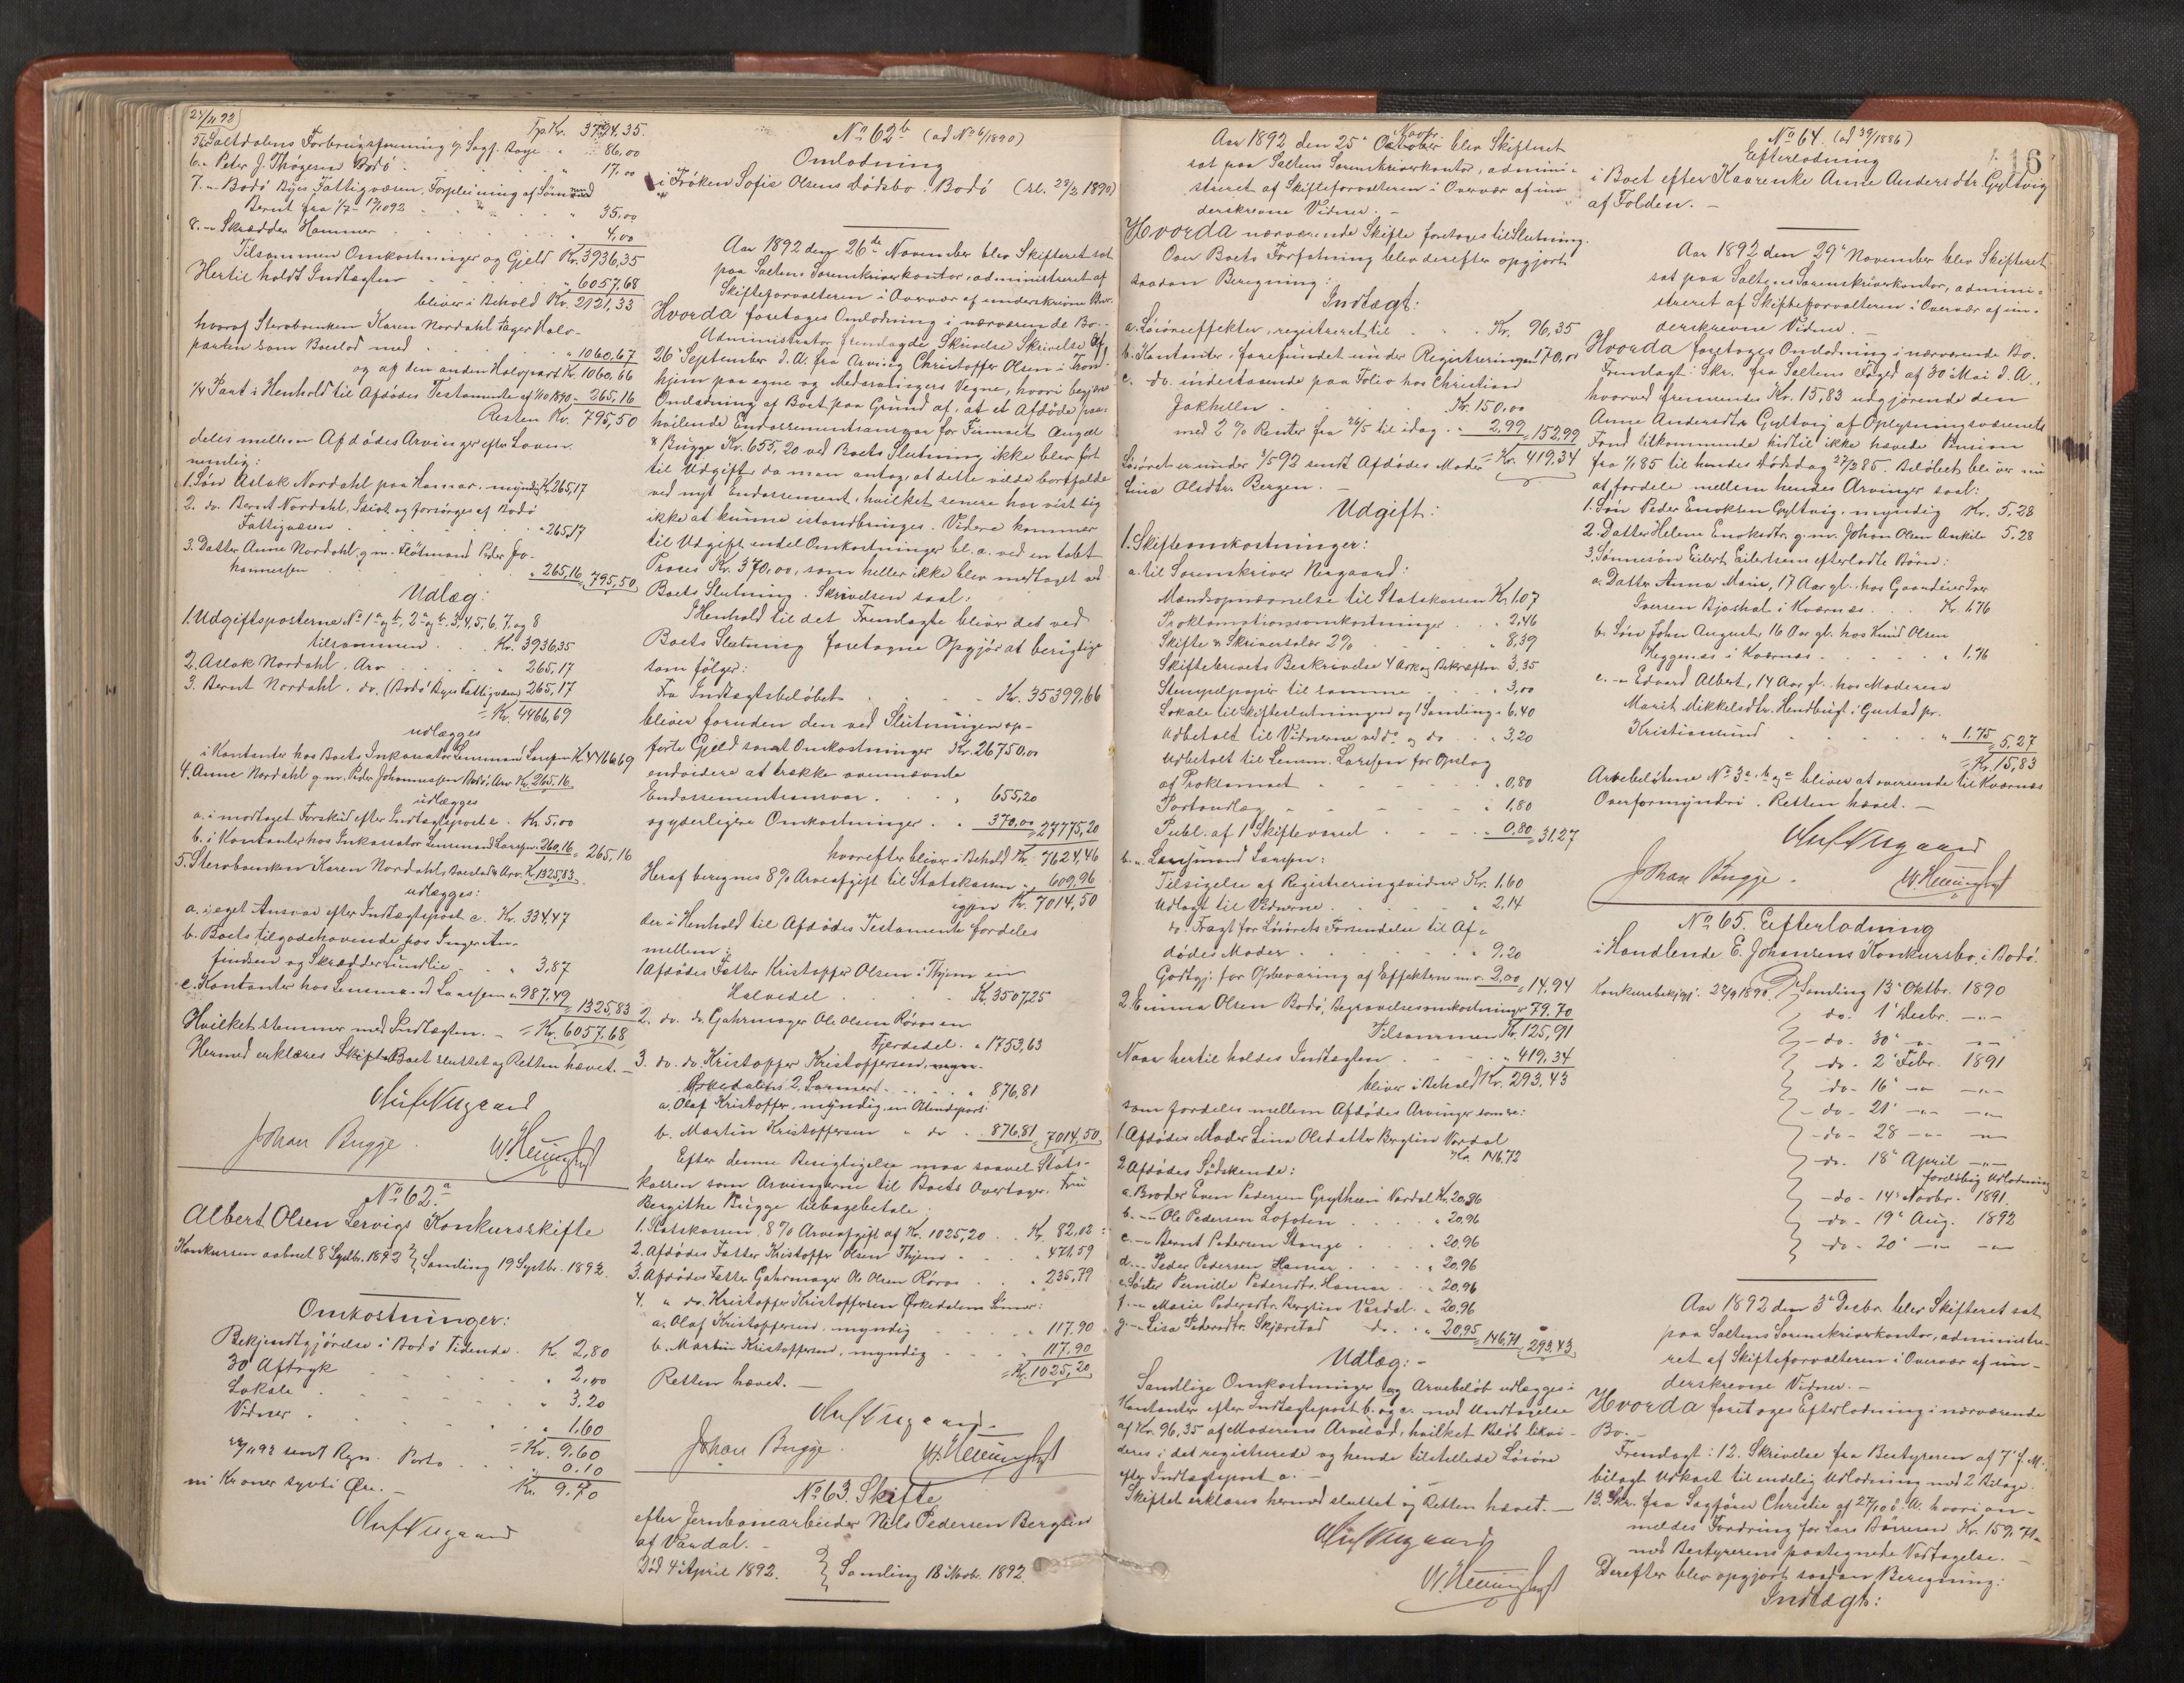 24/11 92
Trp. Kr. 3794,35.
5. Saltdalens Forbrugsforening v/ Sagf. Koye " 86,00
6. " Peter J. Thøgersen Bodö " 17,00
7. " Bodö Byes Fattigvæsen, Forpleining af Sönnen
Bernt fra 1/7 - 12/10 92 " 35,00
8. " Skrædder Hammer " 4,00
Tilsammen Omkostninger og Gjeld Kr. 3936,35
Hertil holdt Indtægten " 6057,68
bliver i Behold Kr. 2121,33
hvoraf Stervboenken Karen Nordahl tager Halv-
parten som Boeslod med " 1060,67
og af den anden Halvpart Kr. 1060,66
1/4 Part i Henhold til Afdödes Testamente af 1/10 1890 - 265,16
Resten Kr. 795,50
deles mellem Afdödes Arvinger efter Loven
nemlig:
1. Sön Aslak Nordahl paa Hamar, myndig Kr. 265,17
2. do. Bernt Nordahl, Idiot og forsörges af Bodö
Fattigvæsen " 265,17
3. Datter Anne Nordahl, g. m. Flötmand Peder Jo-
hannessen " 265,16 = 795,50
Udlæg:
1. Udgiftsposterne No 1 a og b, 2 a og b, 3, 4, 5, 6, 7, og 8
tilsammen Kr. 3936,35
2. Aslak Nordahl, Arv " 265,17
3. Bernt Nordahl, do. (Bodö Byes Fattigvæsen) 265,17
= Kr. 4466,69
udlægges
i Kontanter hos Boets Inkassator Lensmand Larssen Kr. 4466,69
4. Anne Nordahl g. m. Peder Johannessen Bodö, Arv Kr. 265,16
udlægges
a. i modtaget Forskud efter Indtægtspost e. Kr. 5,00
b. i Kontanter hos Inkassator Lensmand Larssen 260,16 = 265,16
5. Stervboenken Karen Nordahls Boeslod & Arv. Kr. 1325,83
udlægges:
a. i eget Ansvar efter Indtægtspost c. Kr. 334,47
b. Boets tilgodehavende hos Inger An-
finsen og Skrædder Lundlie " 3,87
c. Kontanter hos Lensmand Larssen " 987,49
= 1325,83
Hvilket stemmer med Indtægten. - = Kr. 6057,68
Hermed erklæres Skifte Boet sluttet og Retten hævet. -
Johan Bugge.
No 62 a
Albert Olsen Lervigs Konkursskifte
Konkursen aabnet 8 Septbr. 1892 } Samling 19 Septbr. 1892.
Omkostninger:
Bekjendtgjörelse i Bodö Tidende. Kr. 2,80
30 Aftryk " 2,00
Lokale " 3,20
Vidner " 1,60
= Kr. 9,60
sendt Regn. Porto 0,10
ni Kroner sytti Øre. - Kr. 9,70
No 62 b (ad No 6/1890)
Omlodning
i Fröken Sofie Olsens Dödsbo i Bodö (sl. 29/3 1890)
Aar 1892 den 26de November blev Skifteret sat
paa Saltens Sorenskriverkontor, administreret af
Skifteforvalteren i Overvær af underskrevne
Hvorda foretoges Omlodning i nærværende Bo. -
Administrator fremlagde Skrivelse Skrivelse af
26 September d. A. fra Arving Christoffer Olsen i Tron-
hjem paa egne og Medarvingers Vegne, hvori begjæres
Omlodning af Boet paa Grund af, at et Afdöde paa-
hvilende Endossementsansvar for Firmaet Angell
& Bugge Kr. 655,20 ved Boets Slutning ikke blev fört
til Udgift, da man antog, at dette vilde bortfalde
ved nyt Endossement, hvilket senere har vist sig
ikke at kunne istandbringes. Videre kommer
til Udgift endel Omkostninger bl. a. ved en tabt
Proces Kr. 370,00, som heller ikke blev medtaget ved
Boets Slutning. Skrivelsen saal:
I Henhold til det Fremlagte bliver det ved
Boets Slutning foretagne Opgjör at berigtige
som fölger:
Fra Indtægtsbelöbet Kr. 35399,66
bliver foruden den ved Slutningen op-
förte Gjeld samt Omkostninger Kr. 26750,00
endvidere at trække ovennævnte
Endossementsansvar " 655,20
og yderligere Omkostninger " 370,00 = 27775,20
hvorefter bliver i Behold Kr. 7624,46
Heraf beregnes 8% Arveafgift til Statskassen " 609,96
igjen Kr. 7014,50
der i Henhold til Afdödes Testamente fordeles
mellem:
1 Afdödes Fætter Kristoffer Olsen i Thjem en
Halvdel Kr. 3507,25
2. do. do. Gahrmager Ole Olsen Röros en
Fjerdedel " 1753,63
3. do. do. Kristoffer Kristoffersen,
Örkedalens 2 Sönner:
a. Olaf Kristoffer, myndig, en Ottendepart: " 876,81
b. Martin Kristoffersen " do " 876,81 = 7014,50
Efter denne Berigtigelse maa saavel Stats-
kassen som Arvingerne til Boets Overtager, Fru
Bergithe Bugge tilbagebetale:
1. Statskassen, 8% Arveafgift af Kr. 1025,20 Kr. 82,02
2. Afdödes Fætter Kristoffer Olsen Thjem " 471,59
3. Afdödes Fætter Gahrmager Ole Olsen Röros " 235,79
4. " do. Kristoffer Kristoffersen Örkedalens Sönner:
a. Olaf Kristoffersen, myndig " 117,90
b. Martin Kristoffersen, myndig " 117,90
= Kr. 1025,20
Retten hævet. -
Johan Bugge.
No 63. Skifte
efter Jernbanearbeider Nils Pedersen Berglien
af Vardal. -
Död 4 April 1892. } Samling 18 Novb. 1892.
Aar 1892 den 25 October Novbr. blev Skifteret
sat paa Saltens Sorenskriverkontor, admini-
streret af Skifteforvalteren i Overvær af un-
derskrevne Vidner. -
Hvorda nærværende Skifte foretoges til Slutning.
Over Boets Forfatning blev derefter opgjort
saadan Beregning:
Indtægt:
a. Lösöreeffekter, registreret til Kr. 96,35
b. Kontanter, forefundet under Registreringen 170,00
c. do. indestaaende paa Folio hos Christian
Jakhelln Kr. 150,00
med 2% Renter fra 26/5 til idag " 2,99 = 152,99
= Kr. 419,34
Lösöret er under 3/5 92 sendt Afdödes Moder
Lina Olsdtr. Bergen. -
Udgift:
1. Skifteomkostninger:
a. til Sorenskriver Nergaard:
Mandsopnævnelse til Statskassen Kr. 1,07
Proklamationsomkostninger " 2,46
Skifte & Skriversalær 2% " 8,39
Skiftebrevets Beskrivelse 4 Ark og Bekræften 3,35
Stempelpapir til samme " 3,00
Lokale til Skifteslutningen og 1 Samling " 6,40
Udbetalt til Vidnerne ved do og do " 3,20
Udbetalt til Lensm. Larssen for Opslag
af Proklamaet " 0,80
Portoudlæg " 1,80
Publ. af 1 Skiftevarsel " 0,80 = 31,27
b. " Lensmand Larssen:
Tilsigelse af Registreringsvidner Kr. 1,60
Udlagt til Vidnerne " 2,14
do Fragt for Lösörets Forsendelse til Af-
dödes Moder " 9,20
Godtgj. for Opbevaring af Effekterne m. v. 2,00 = 14,94
2. Emma Olsen Bodö, Begravelsesomkostninger 79,70
Tilsammen Kr. 125,91
Naar hertil holdes Indtægten " 419,34
bliver i Behold Kr. 293,43
som fordeles mellem Afdödes Arvinger
1. Afdödes Moder Lina Olsdatter Berglien Vardal
Kr. 146,72
2 Afdödes Södskende:
a. Broder Even Pedersen Grythein Vardal Kr. 20,96
b. - " Ole Pedersen Lofoten " 20,96
c. - " Bernt Pedersen Stange " 20,96
d. - " Peder Pedersen Hamar " 20,96
e. Söster Pernille Pedersdtr. Hamar " 20,96
f. - " Marie Pedersdtr. Berglien Vardal " 20,96
g. - " Lisa Pedersdtr. Skjærstad do. " 20,95 = 146,71 = 293,43
Udlæg: -
Samtlige Omkostninger og Arvebelöb udlægges i
Kontanter efter Indtægtspost b. og c. med Undtagelse
af Kr. 96,35 af Moderens Arvelod, hvilket Belöb likvi-
deres i det registrerede og hende tilstillede Lösöre
efter Indtægtspost a. -
Skiftet erklæres hermed sluttet og Retten hævet. -
No 64. (ad 39/1886)
116
Efterlodning
i Boet efter Kaarenke Anne Andersdtr. Gyltvig
af Folden. -
Aar 1892 den 29 November blev Skifteret
sat paa Saltens Sorenskriverkontor, admini-
streret af Skifteforvalteren i Overvær af un-
derskrevne Vidner. -
Hvorda foretoges Omlodning i nærværende Bo.
Fremlagt: Skr. fra Saltens Foged af 30 Mai d. A.,
hvorved fremsendes Kr. 15,83 udgjörende den
Anne Andersdtr Gyltvig af Oplysningsvæsenets
Fond tilkommende hidtil ikke hævede Pension
fra 1/1 85 til hendes Dödsdag 27/3 85. Belöbet bliver nu
at fordele mellem hendes Arvinger saal:
1. Sön Peder Enoksen Gyltvig, myndig Kr. 5.28
2. Datter Helene Enoksdtr. g. m. Johan Olsen Ankile 5.28
3. Sönnesön Eilert Eilertsens efterladte Börn:
a. Datter Anna Marie, 17 Aar gl. hos Gaardeier Iver
Iversen Bjoshol i Kværnes Kr. 1,76
b. Sön John August, 16 Aar gl. hos Knud Olsen
Heggenes i Kværnes " 1,76
c. - " Edvard Albert, 14 Aar gl. hos Moderen
Marit Mikkelsdtr. Hendbugt i Gustad pr.
Kristiansund " 1.75 = 5.27
= Kr. 15,83
Arvebelöbene No 3 a, b og c bliver at oversende til Kværnes
Overformynderi. Retten hævet. -
Johan Bugge.
No 65. Efterlodning
i Handlende E. Johansens Konkursbo, i Bodö.
Konkursbekjgj. 22/9 1890. } Samling 13 Oktbr. 1890
do. 1 Decbr. - " -
- do - 30 - " - - " -
- do - 2 Febr. 1891
- do - 16 - " - - " -
- do - 21 - " - - " -
- do - 28 - " - - " -
do. 18 April - " -
foreløbig Udlodning
- do - 14 Novbr. 1891.
- do - 19 Aug. 1892
- do - 20 - " - - " -
Aar 1892 den 3 Decbr. blev Skifteret sat
paa Saltens Sorenskriverkontor, administre-
ret af Skifteforvalteren i Overvær af un-
derskrevne Vidner. -
Hvorda foretoges Efterlodning i nærværende
Bo. -
Fremlagt: 12. Skrivelse fra Bestyreren af 7 f. M.,
bilagt Udkast til endelig Udlodning med 2 Bilage.
13. Skr. fra Sagförer Christie af 27/10 d. A. hvori an-
meldes Fordring for Lars Börresen Kr. 159,74
med Bestyrerens paategnede Vedtagelse. -
Derefter blev opgjort saadan Beregning:
Indtægt: